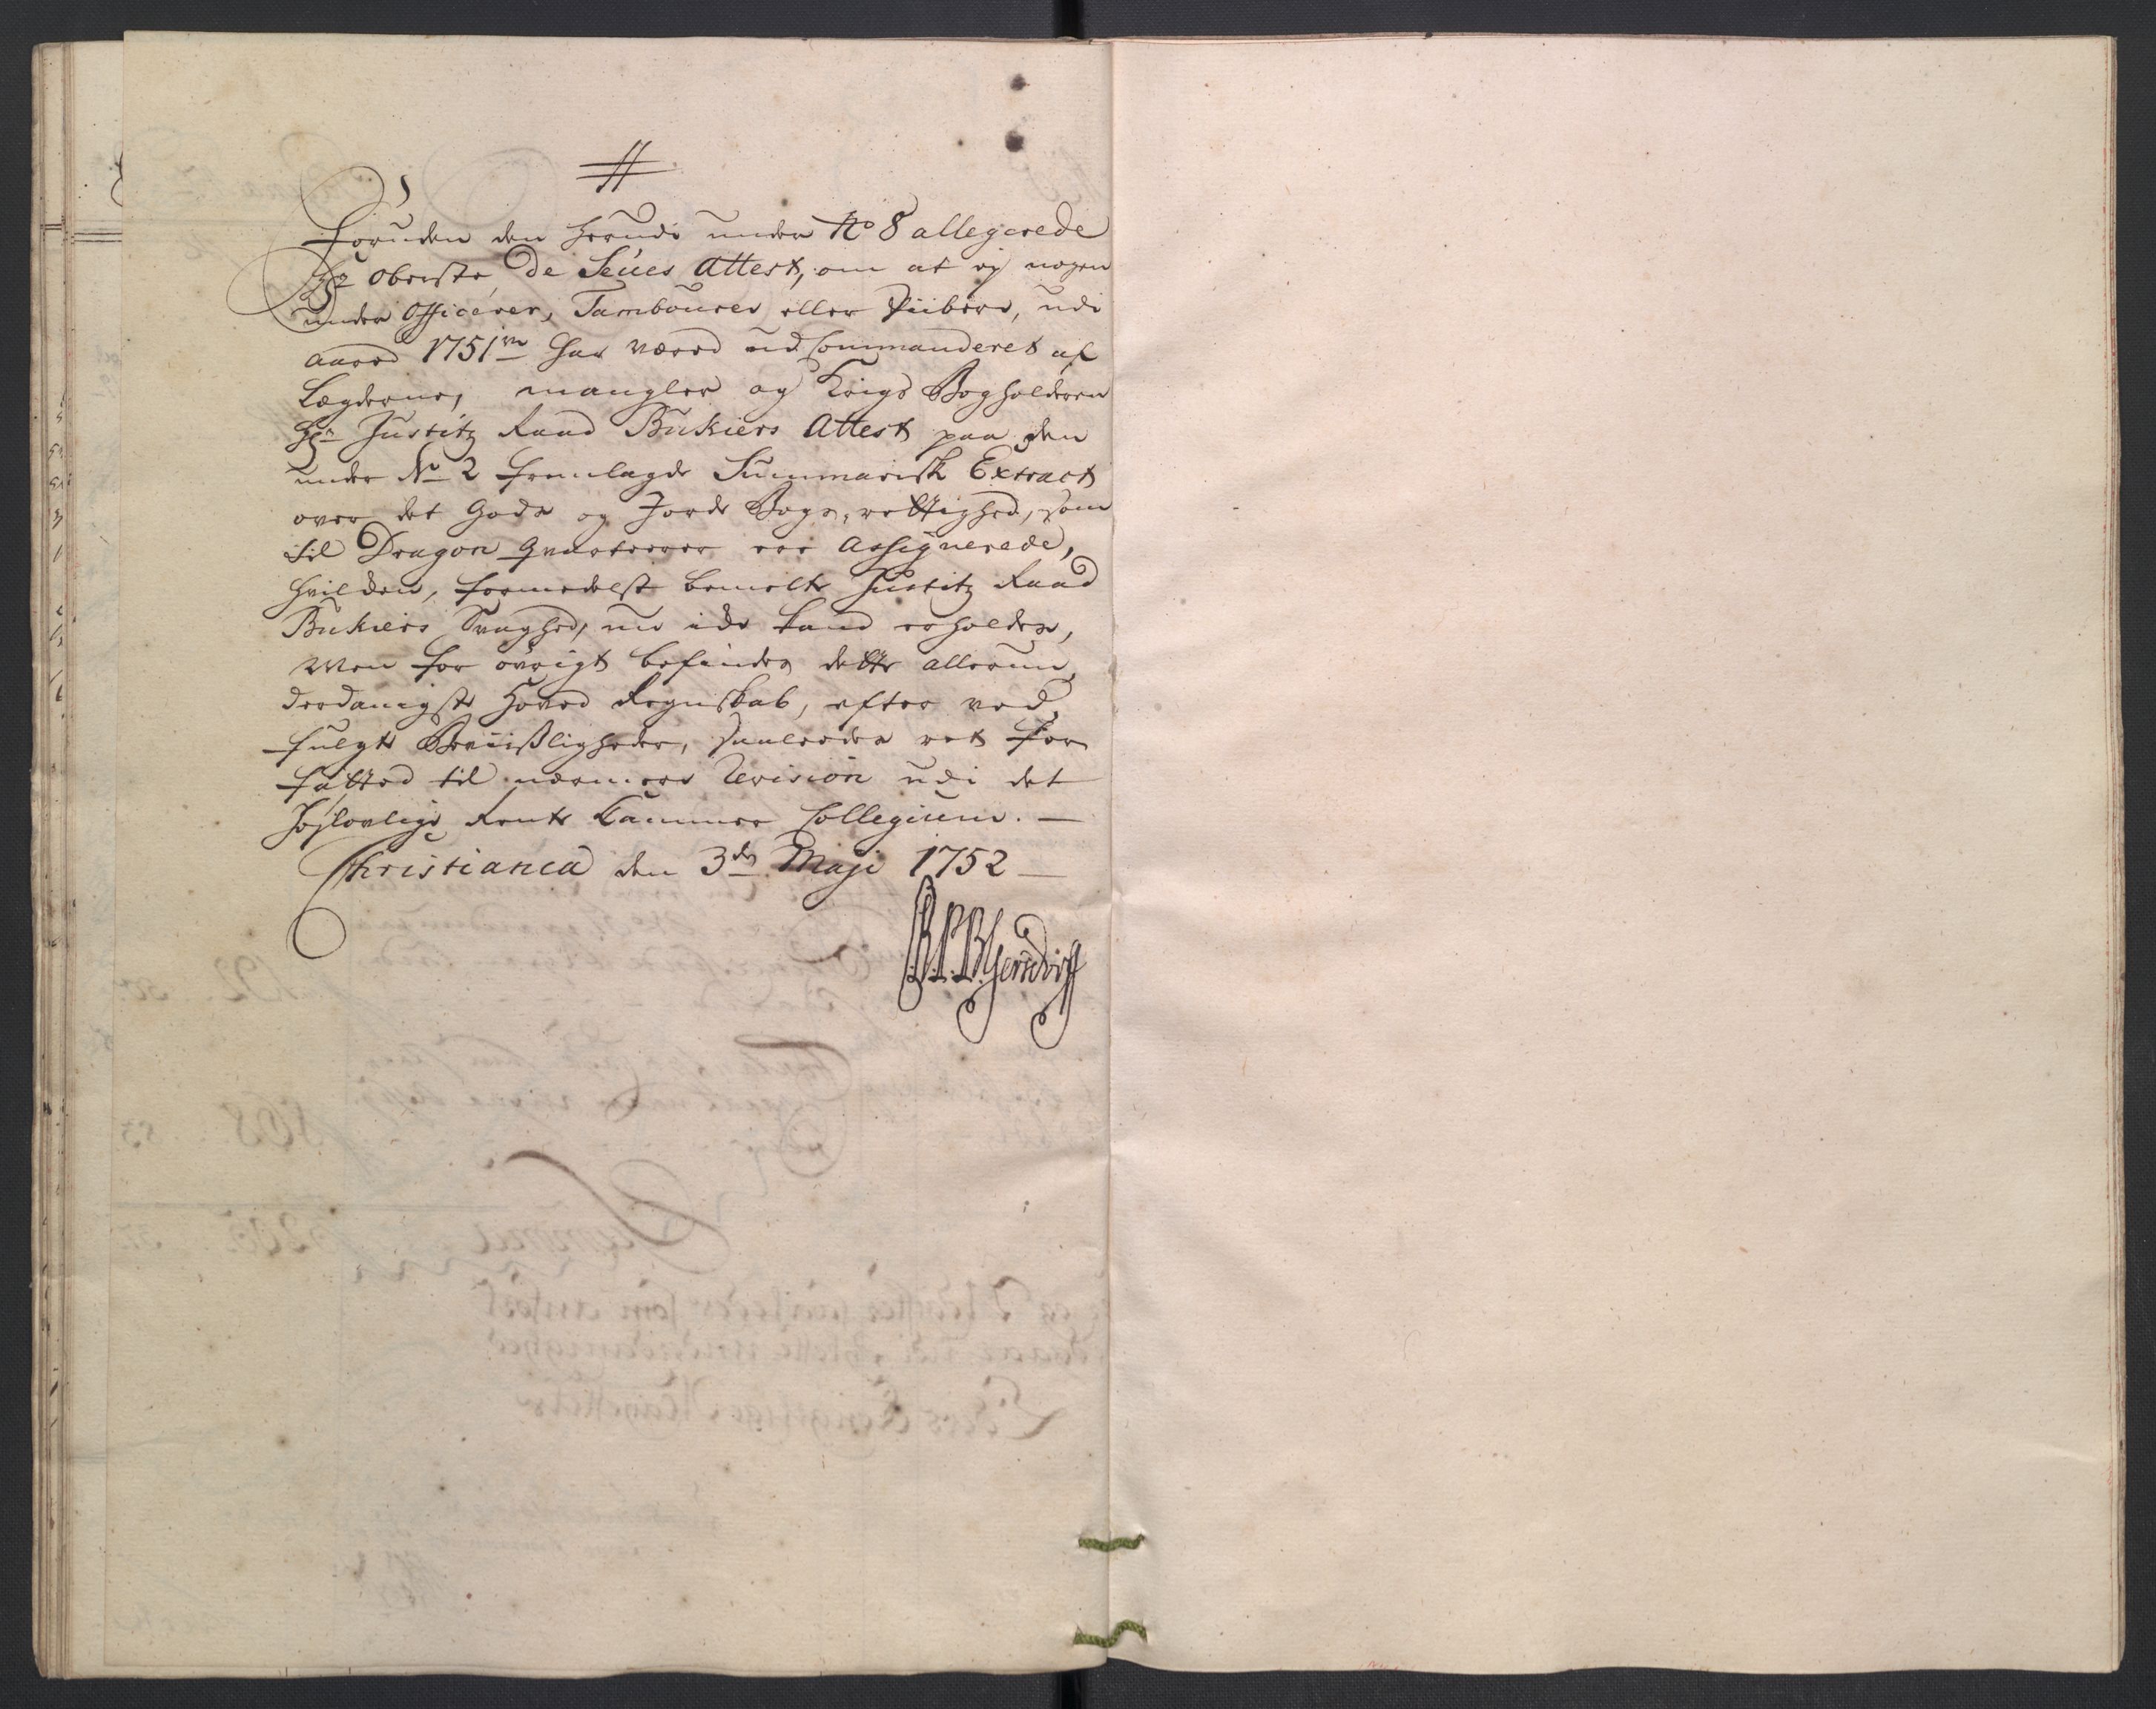 #
Foruden den herudi under No 8 allegerede
Hr Oberste De Seues Attest, om at ej nogen
under Officerer, Tambourer eller Piibere, udi
aared 1751ve har væred ud Commanderet af
Lægderne, mangler og Krigs Bogholderen
Hr Justitz Raad Bukiers Attest paa den
under No 2 fremlagde Summarisk Extract
over det Gods og Jorde Bogs rettighed, som
til Dragon Qvarterer er Assignerede,
hvilden, formedelst bemelte Justitz Raad
Bukiers Svaghed, nu icke kand erholdes,
Men for øvrigt befindes dette allerun
derdanigste Hoved Regnskab, efter ved
fulgte Beviißligheder, saaledes ret for
fatted til nærmere Revision udi det
Høylovlige Rente Kammer Collegium. —
Christiania den 3de Maji 1752 —